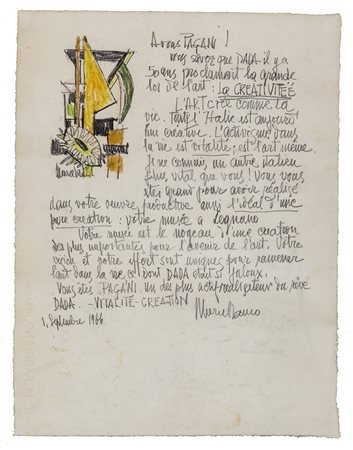 A vous PAGANI !
vous savez que DADA - il y a
50 ans proclamait la grande
loi de l'art : LA CREATIVITÉÉ
L'ART crée comme la
vie. Toute l'Italie est aujourd'
hui creative. L'activisme dans
la vie est vitalité : est l'art meme.
Je ne connais un autre italien
plus vital que vous ! Vous vous
etes grand pour avoir réalisé
dans votre oeuvre productive aussi l'ideal d'une
pure creation : votre musée a Legnano
Votre musée est le noyeau d'une creation
des plus importantes pour l'avenir de l'art. Votre
vision et votre effort sont uniques pour ramener
l'art dans la vie ce dont DADA etait si jaloux.
Vous étes, PAGANI, un des plus actifs realisateur du rêve
DADA. - VITALITÉ - CREATION
1, Septembre 1966
Marcel Janco